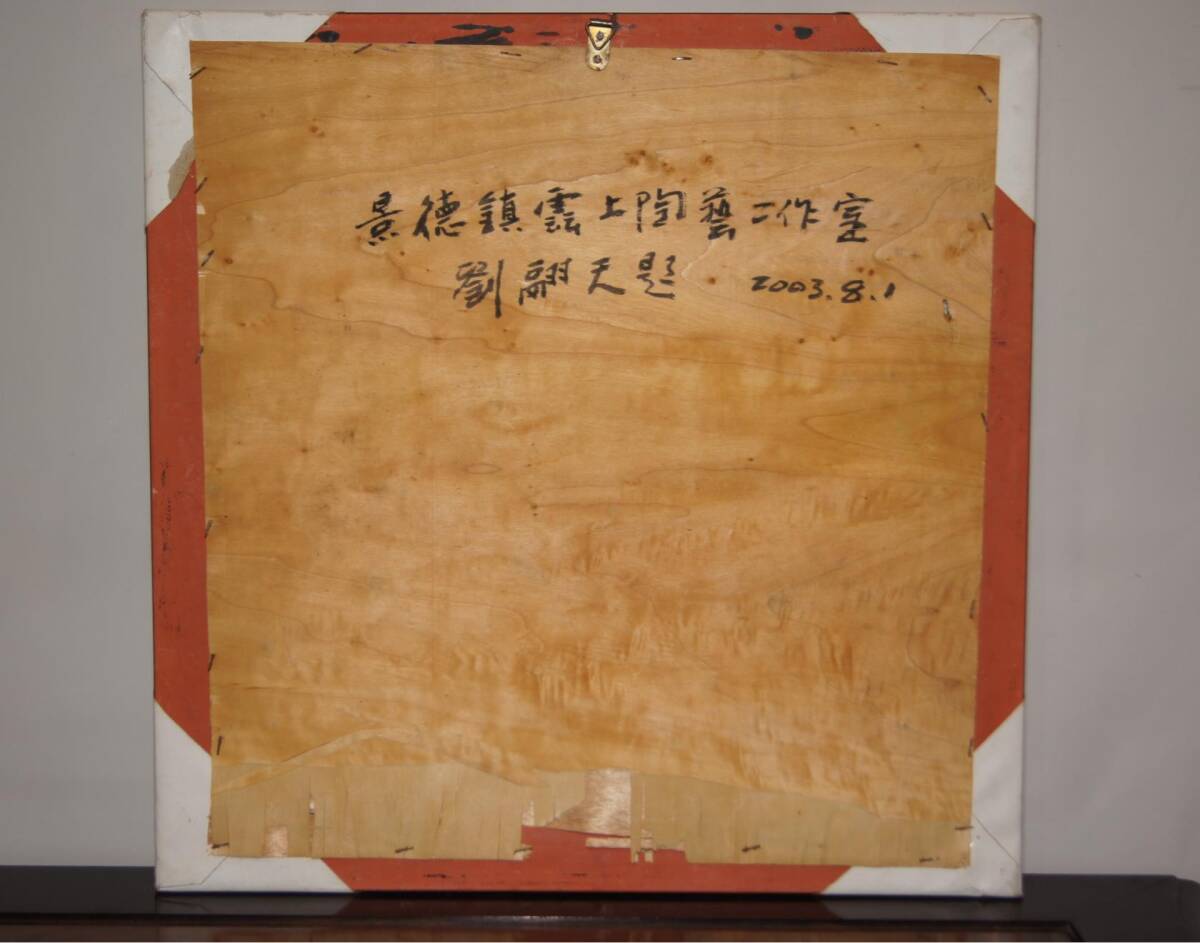 景德鎮雲上陶藝工作室
劉翮天題 2003.8.1